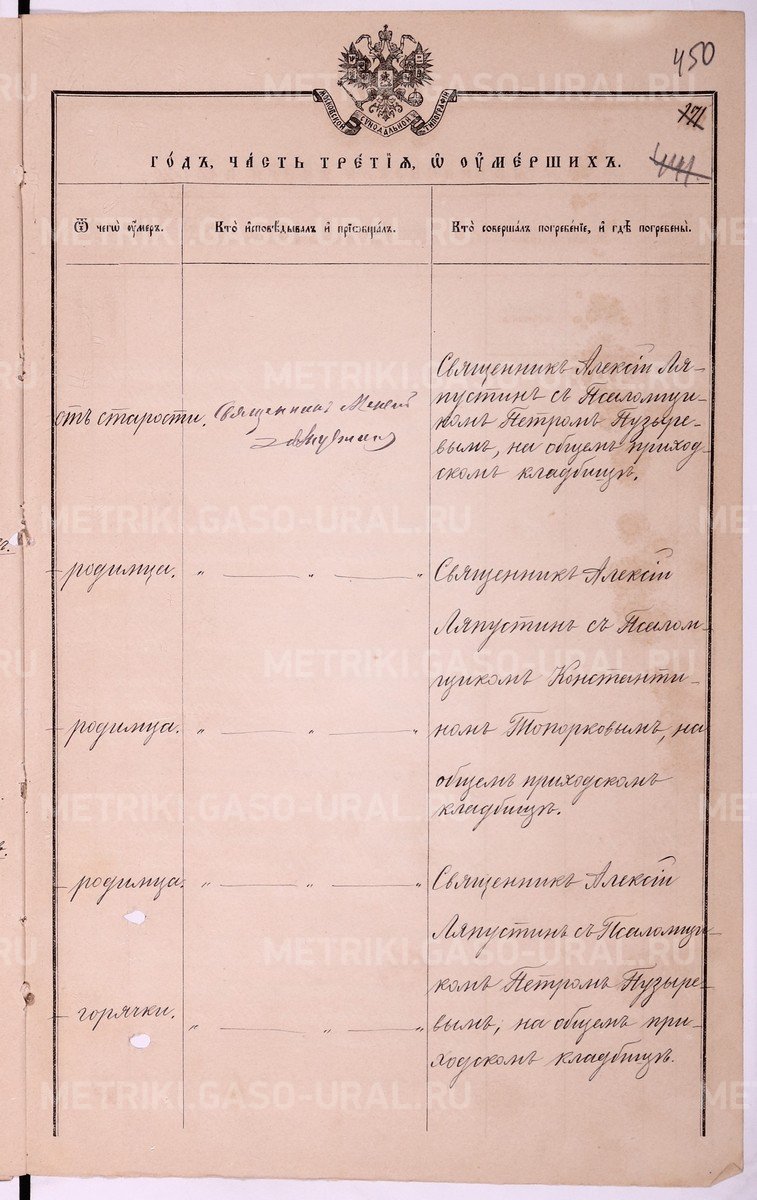 450
171
441.
МОСКОВСКОЙ СУНОДАЛЬНОЙ ТИПОГРАФІИ
ГО́ДЪ, ЧА́СТЬ ТРЕ́ТІѦ, Ѡ ОУМЕ́РШИХЪ.
Ѿ чегѡ̀ оу҆́меръ.
Кто̀ и҆сповѣ́дывалъ и҆ прїѡбща́лъ.
Кто̀ соверша́лъ погребе́нїе, и҆ гдѣ̀ погребены̀.
отъ старости.
Священникъ
Священникъ Алексій Ля-
пустинъ съ Псаломщи-
комъ Петромъ Пузыре-
вымъ, на общемъ приход-
скомъ кладбищѣ.
– родимца. " — " — "
Священникъ Алексій
Ляпустинъ съ Псалом-
щикомъ Константи-
– родимца. " — " — "
номъ Топорковымъ, на
общемъ приходскомъ
кладбищѣ.
– родимца. " — " — "
Священникъ Алексій
Ляпустинъ съ Псаломщи-
комъ Петромъ Пузыре-
– горячки. " — " — "
вымъ, на общемъ при-
ходскомъ кладбищѣ.
METRIKI.GASO-URAL.RU